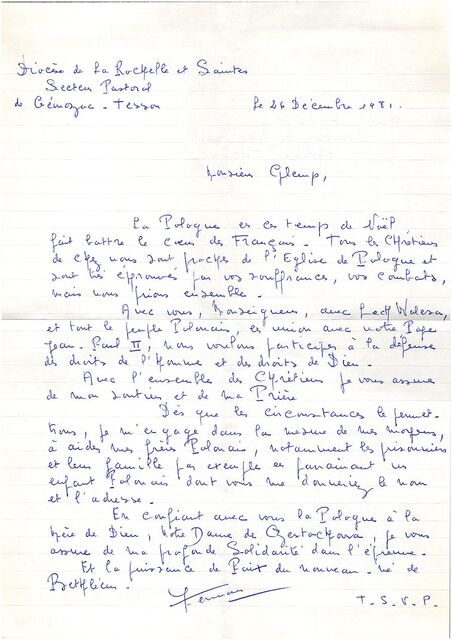 Diocèse de La Rochelle et Saintes
Secteur Pastoral
de Gémozac - Tesson
Le 26 Décembre 1981.
Monsieur Glemp,
La Pologne en ces temps de Noël
fait battre le cœur des Français. Tous les Chrétiens
de chez nous sont proches de l'Eglise de Pologne et
sont très éprouvés par vos souffrances, vos combats,
mais nous prions ensemble.
Avec vous, Monseigneur, avec Lech Walesa,
et tout le peuple Polonais, en union avec notre Pape
Jean-Paul II, nous voulons participer à la défense
des droits de l'Homme et des droits de Dieu.
Avec l'ensemble des Chrétiens je vous assure
de mon soutien et de ma Prière
Dès que les circonstances le permet-
trons, je m'engage dans la mesure de mes moyens,
à aider mes frères Polonais, notamment les prisonniers
et leur famille par exemple en parrainant un
enfant Polonais dont vous me donneriez le nom
et l'adresse.
En confiant avec vous la Pologne à la
Mère de Dieu, Notre Dame de Czestochowa, je vous
assure de ma profonde Solidarité dans l'épreuve.
Et la puissance de Paix du nouveau-né de
Bethléem.
T.S.V.P.